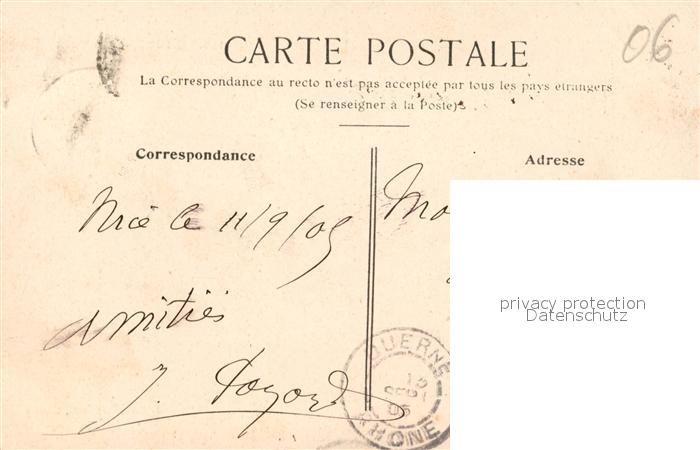 06
CARTE POSTALE
La Correspondance au recto n'est pas acceptée par tous les pays étrangers
(Se renseigner à la Poste)
Correspondance
Adresse
Nice le 11/9/05
Mo
privacy protection
Datenschutz
Amitiés
J.
DUERNE
12
RHONE